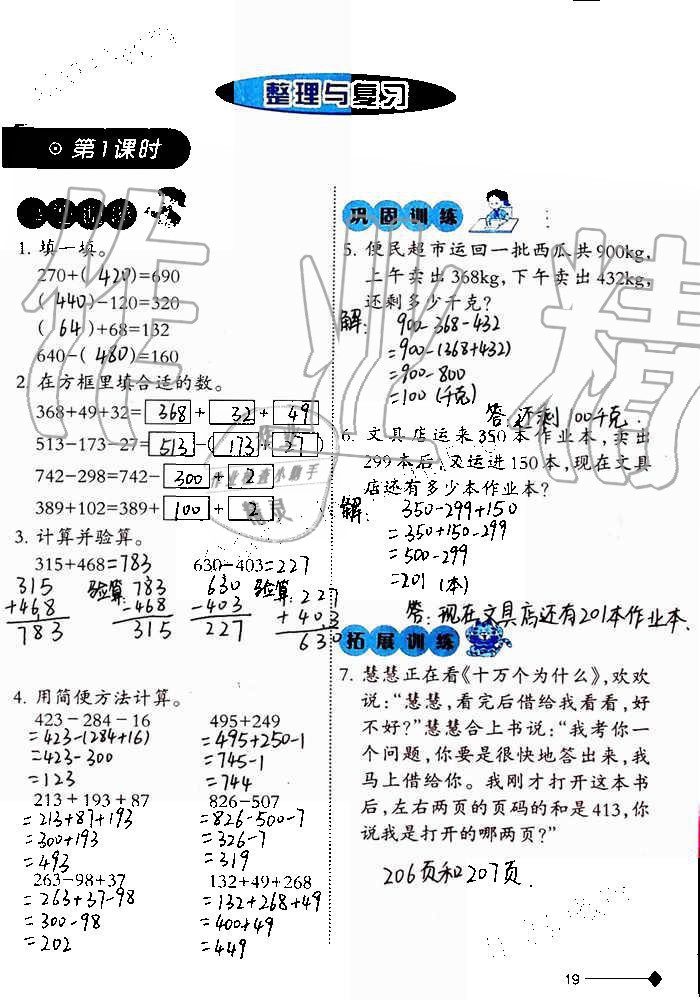 整理与复习
第1课时
1. 填一填。
270+( 420 )=690
( 440 )-120=320
( 64 )+68=132
640-( 480 )=160
2. 在方框里填合适的数。
368+49+32= 368 + 32 + 49
513-173-27= 513 -( 173 + 27 )
742-298=742- 300 + 2
389+102=389+ 100 + 2
3. 计算并验算。
315+468=783 630-403=227
315 验算: 783 630 验算: 227
+468 -468 -403 +403
783 315 227 630
4. 用简便方法计算。
423-284-16 495+249
=423-(284+16) =495+250-1
=423-300 =745-1
=123 =744
213+193+87 826-507
=213+87+193 =826-500-7
=300+193 =326-7
=493 =319
263-98+37 132+49+268
=263+37-98 =132+268+49
=300-98 =400+49
=202 =449
巩固训练
5. 便民超市运回一批西瓜共900kg,
上午卖出368kg,下午卖出432kg,
还剩多少千克?
解: 900-368-432
=900-(368+432)
=900-800
=100(千克)
答:还剩100千克.
6. 文具店运来350本作业本,卖出
299本后,又运进150本,现在文具
店还有多少本作业本?
解: 350-299+150
=350+150-299
=500-299
=201 (本)
答:现在文具店还有201本作业本.
拓展训练
7. 慧慧正在看《十万个为什么》,欢欢
说:“慧慧,看完后借给我看看,好
不好?”慧慧合上书说:“我考你一
个问题,你要是很快地答出来,我
马上借给你。我刚才打开这本书
后,左右两页的页码的和是413,你
说我是打开的哪两页?”
206页和207页.
19